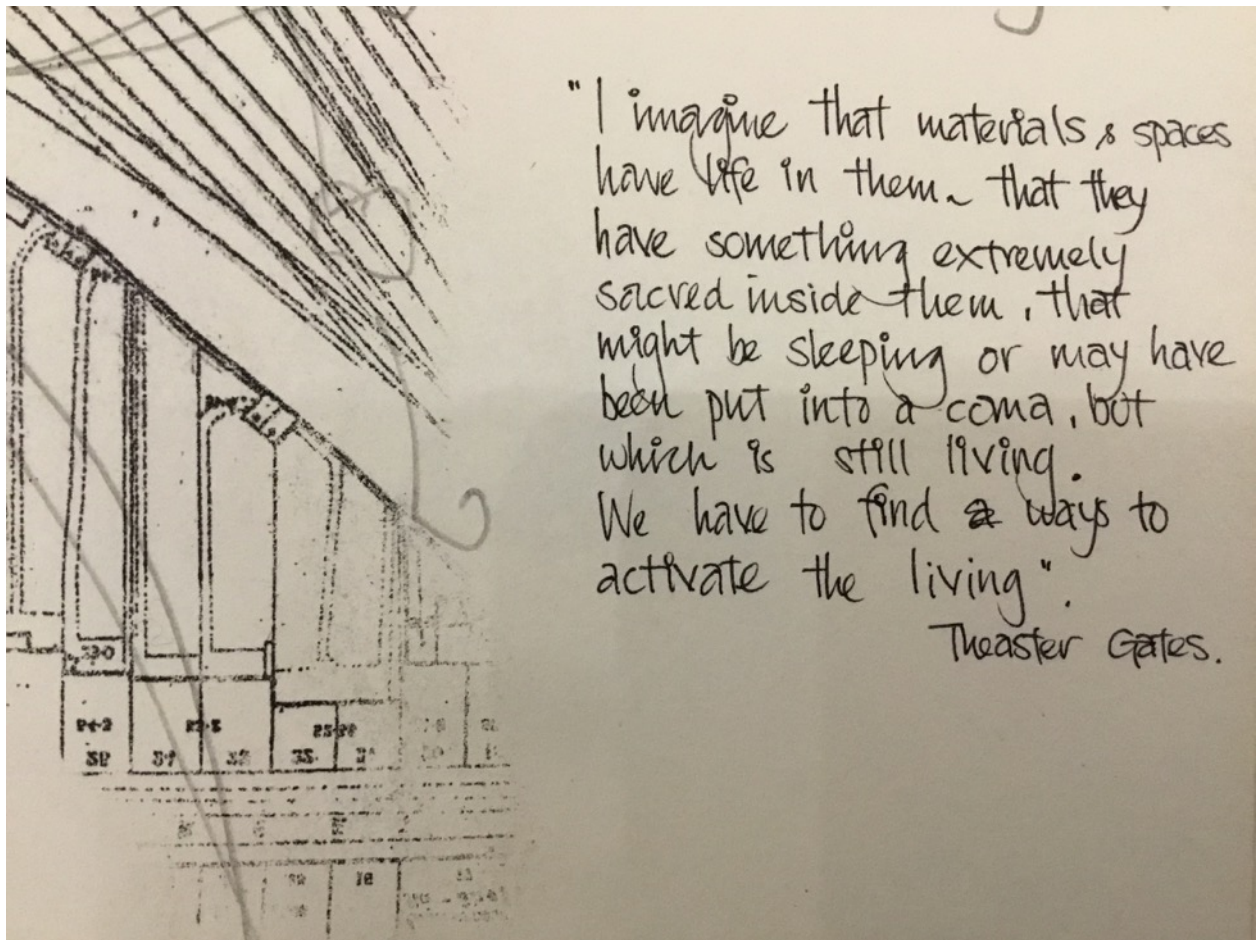 "I imagine that materials & spaces
have life in them~ that they
have something extremely
sacred inside them, that
might be sleeping or may have
been put into a coma, but
which is still living.
We have to find ways to
activate the living".
Theaster Gates.